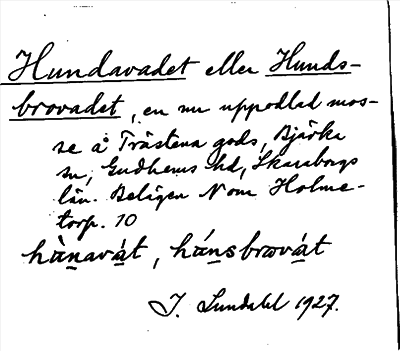 Hundavadet eller Hunds-
brovadet, en nu uppodlad mos-
se å Trästena gods, Bjärka
sn, Gudhems hd, Skaraborgs
län. Belägen N om Holme-
torp. 10
hùnavát, húnsbrovát
J. Lundahl 1927.